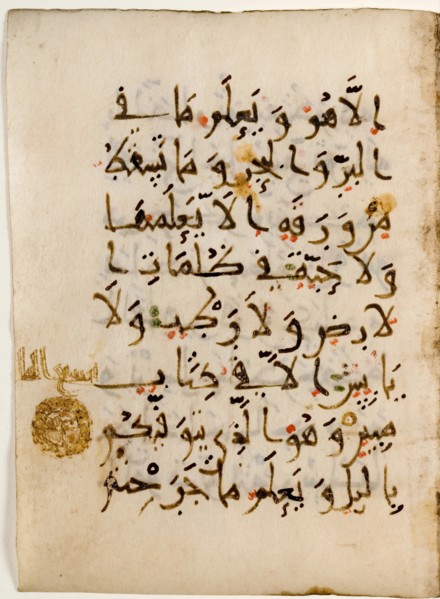 إِلَّا هُوَ وَيَعْلَمُ مَا فِي
الْبَرِّ وَالْبَحْرِ وَمَا تَسْقُطُ
مِنْ وَرَقَةٍ إِلَّا يَعْلَمُهَا
وَلَا حَبَّةٍ فِي ظُلُمَاتِ ا
لْأَرْضِ وَلَا رَطْبٍ وَلَا
يَابِسٍ إِلَّا فِي كِتَابٍ
مُبِينٍ وَهُوَ الَّذِي يَتَوَفَّيكُمْ
بِالَّيْلِ وَيَعْلَمُ مَا جَرَحْتُمْ